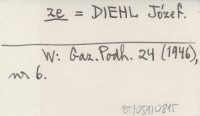 ze = DIEHL Józef.
W: Gaz. Podh. 24 (1946),
nr 6.